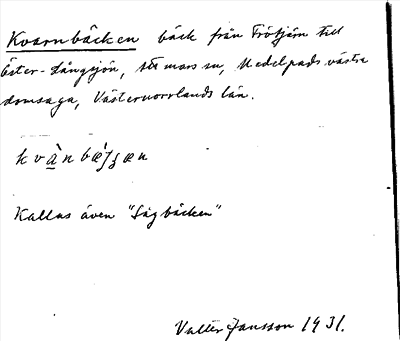 Kvarnbäcken bäck från Trötjärn till
Öster-Långsjön, Attmars sn, Medelpads västra
domsaga, Västernorrlands län.
Kallas även "Sågbäcken"
Valter Jansson 1931.